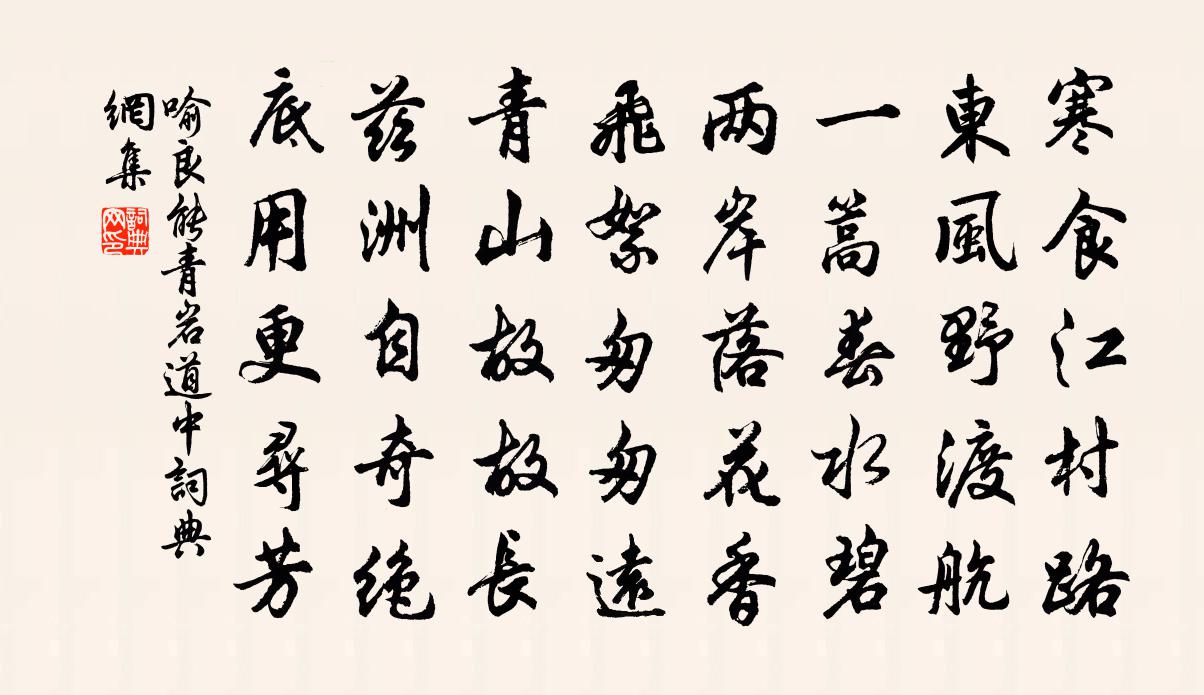 寒食江村路
東風野渡航
一蒿春水碧
两岸落花香
飛絮匆匆遠
青山故故長
茲洲自奇絶
底用更尋芳
喻良能青岩道中詞典
網集
詞典
网印